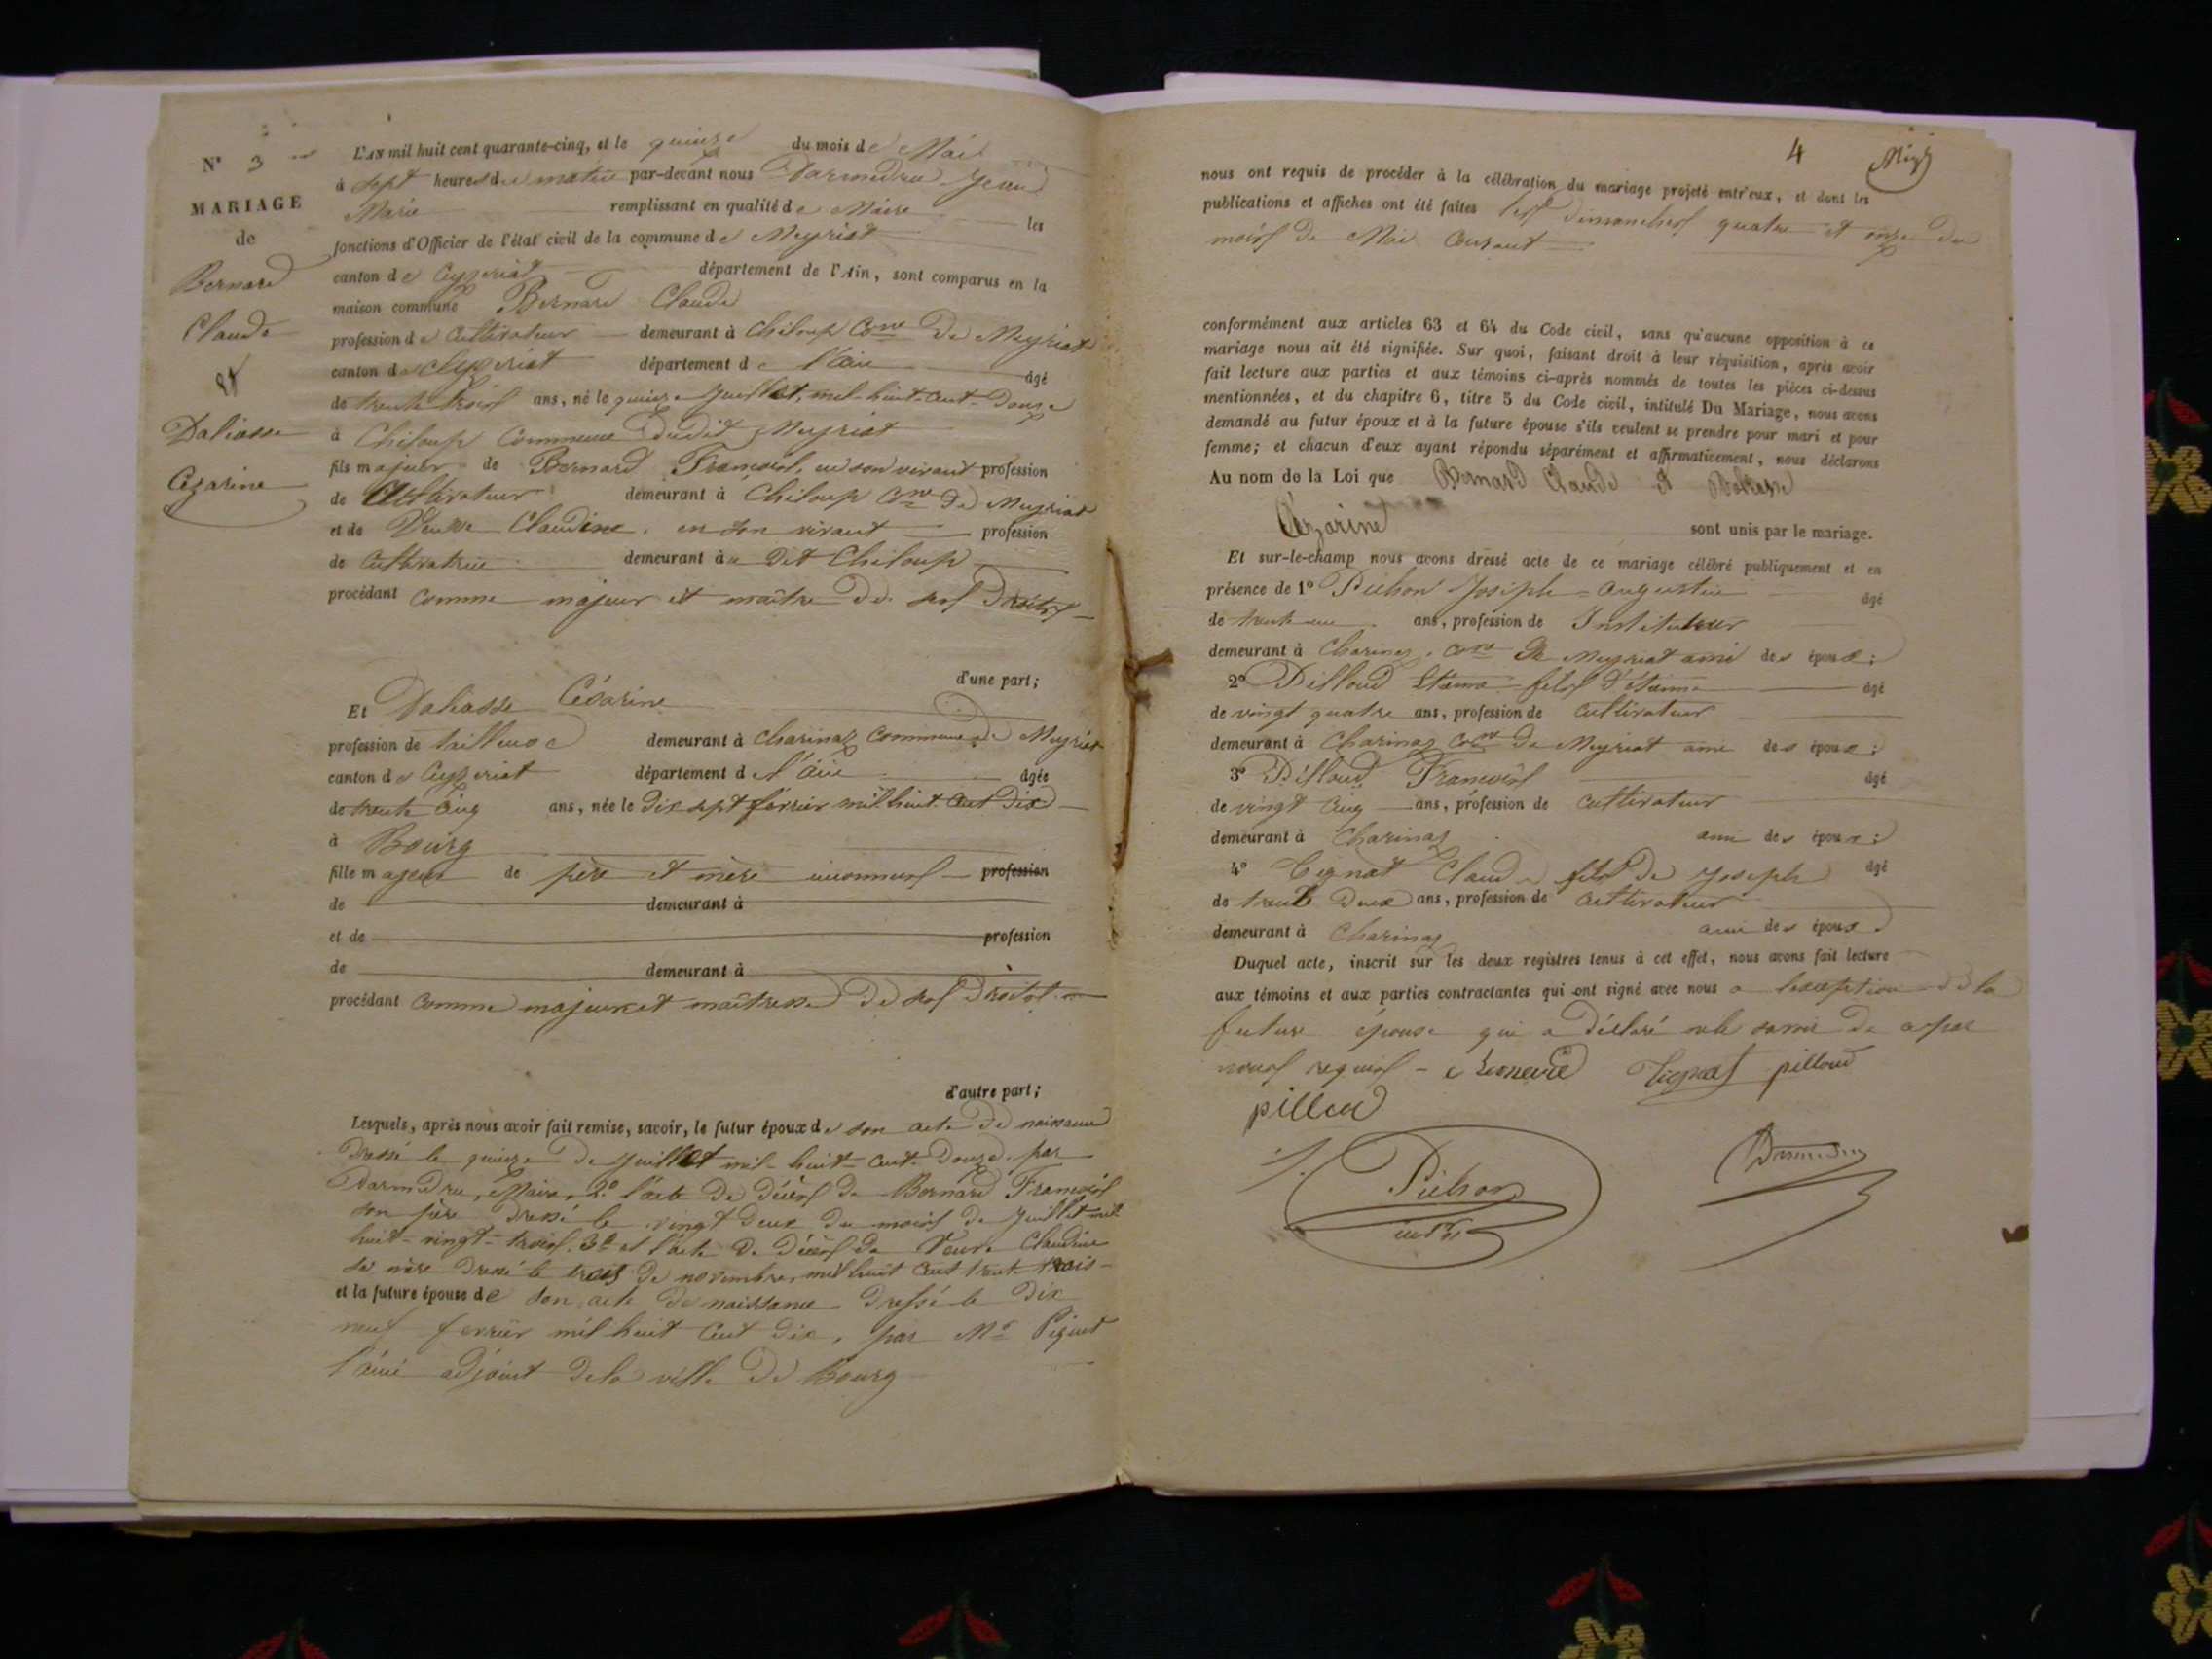 N° 3
MARIAGE
de
Bernard
Claude
et
Daliasse
Cézarine
L'AN mil huit cent quarante-cinq, et le quinze du mois de Mai
à sept heures du matin par-devant nous Darmedru Jean
Marie remplissant en qualité de Maire les
fonctions d'Officier de l'état civil de la commune de Meyriat
canton de Ceyzeriat département de l'Ain, sont comparus en la
maison commune Bernard Claude
profession de Cultivateur demeurant à Chiloup Cne De Meyriat
canton de Ceyzeriat département de l'ain âgé
de trente trois ans, né le quinze Juillet, mil-huit-cent-Douze
à Chiloup Commune Dudit Meyriat
fils majeur de Bernard François, en son vivant profession
de Cultivateur demeurant à Chiloup Cne De Meyriat
et de Veuve Claudine, en son vivant profession
de Cultivatrice demeurant au Dit Chiloup
procédant comme majeur et maître De ses Droits
d'une part;
Et Daliasse Césarine
profession de tailleuse demeurant à Charinaz Commune De Meyriat
canton de Ceyzeriat département de l'Ain âgée
de trente cinq ans, née le Dix sept février mil huit Cent Dix
à Bourg
fille majeur de père et mère inconnus profession
de demeurant à
et de profession
de demeurant à
procédant comme majeure et maîtresse De ses Droits.
d'autre part;
Lesquels, après nous avoir fait remise, savoir, le futur époux de son acte De naissance
Dressé le quinze De Juillet mil-huit-Cent-Douze par
Darmedru, Maire, 2° l'acte De Décès De Bernard François
son père Dressé le vingt Deux Du mois De Juillet mil
huit-vingt-trois. 3° et l'acte De Décès De Veuve Claudine
sa mère Dressé le trois De novembre, mil huit Cent trente trois
et la future épouse de son acte De naissance Dressé le Dix
neuf ferrier mil huit Cent Dix, par Mr
l'ainé adjoint De la ville De Bourg
4
nous ont requis de procéder à la célébration du mariage projeté entr'eux, et dont les
publications et affiches ont été faites les Dimanches quatre et onze Du
mois De Mai Courant
conformément aux articles 63 et 64 du Code civil, sans qu'aucune opposition à ce
mariage nous ait été signifiée. Sur quoi, faisant droit à leur réquisition, après avoir
fait lecture aux parties et aux témoins ci-après nommés de toutes les pièces ci-dessus
mentionnées, et du chapitre 6, titre 5 du Code civil, intitulé Du Mariage, nous avons
demandé au futur époux et à la future épouse s'ils veulent se prendre pour mari et pour
femme; et chacun d'eux ayant répondu séparément et affirmativement, nous déclarons
Au nom de la Loi que Bernard Claude et Daliasse
Cézarine sont unis par le mariage.
Et sur-le-champ nous avons dressé acte de ce mariage célébré publiquement et en
présence de 1° Pichon Joseph-Augustin âgé
de trente ans, profession de Instituteur
demeurant à Charinaz, Cne De Meyriat ami des époux;
2° Pilloud Etienne fils D'étienne âgé
de vingt quatre ans, profession de Cultivateur
demeurant à Charinaz Cne De Meyriat ami des époux;
3° Pilloud François âgé
de vingt Cinq ans, profession de Cultivateur
demeurant à Charinaz ami des époux;
4° Tignat Claude fils De Joseph âgé
de trente Deux ans, profession de Cultivateur
demeurant à Charinaz ami des époux
Duquel acte, inscrit sur les deux registres tenus à cet effet, nous avons fait lecture
aux témoins et aux parties contractantes qui ont signé avec nous a lexception De la
future épouse qui a Déclaré ne le savoir De ce par
nous requis - Tignat pilloud
pilloud
Pichon
Darmedru